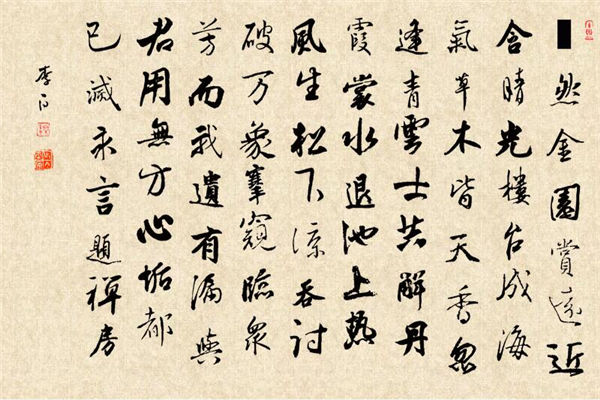 然金園賞遠近
含晴光樓台成海
氣草木皆天香忽
逢青雲士共解丹
霞裳水退池上熱
風生松下涼吞討
破万象搴窺臨衆
芳而我遺有漏與
君用無方心垢都
已滅永言題禅房
李白